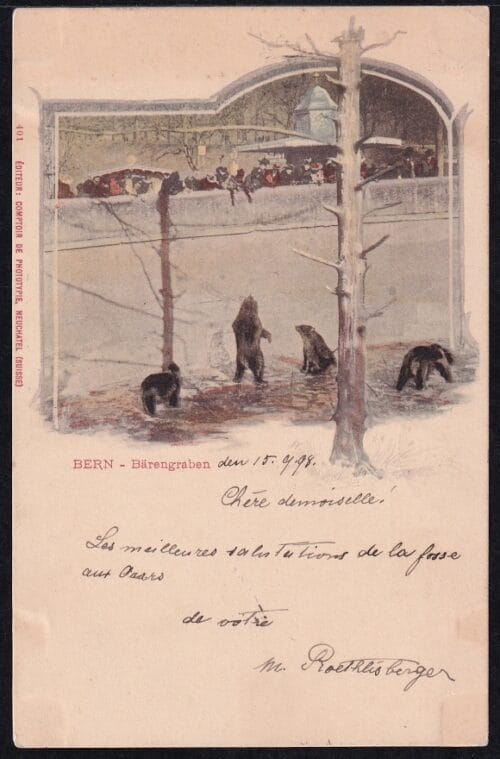 401 ÉDITEUR: COMPTOIR DE PHOTOTYPIE, NEUCHATEL (SUISSE)
BERN - Bärengraben den 15. 9/98.
Chère demoiselle!
Les meilleures salutations de la fosse
aux Oaars
de vôtre
M. Roethlisberger